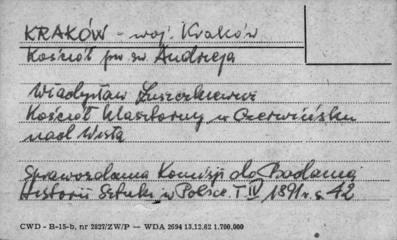 KRAKÓW - woj. Kraków
Kościół pw św. Andrzeja
Władysław Łuszczkiewicz
Kościół Klasztorny w Czerwińsku
nad Wisłą
Sprawozdania Komisji do Badania
Historii Sztuki w Polsce T IV 1891 r. s 42
CWD - B-15-b, nr 2827/ZW/P — WDA 2694 13.12.62 1.700.000